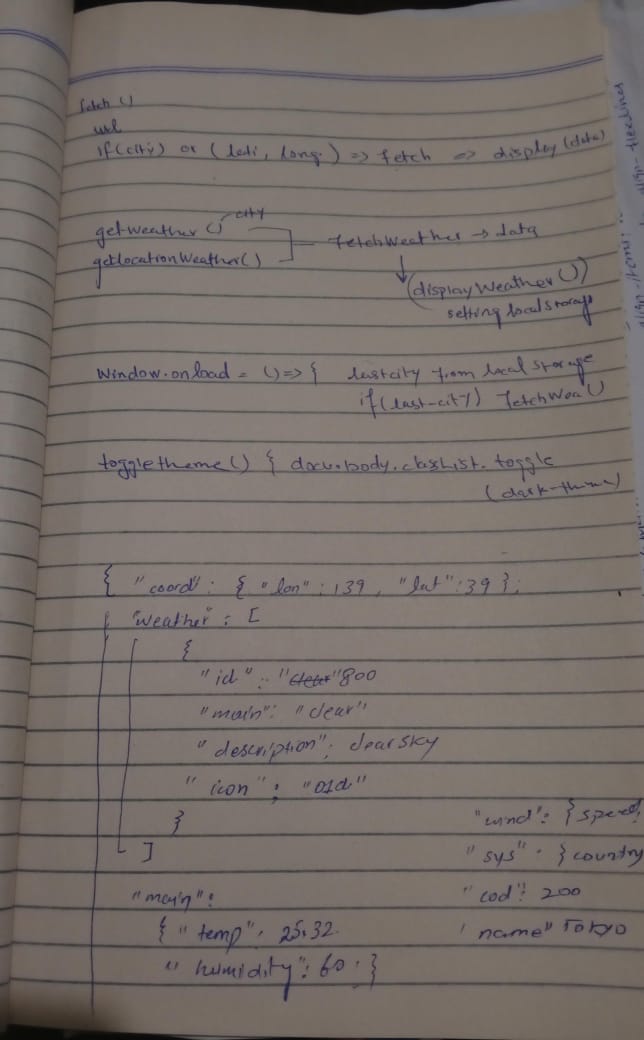 fetch ()
url
if(city) or (lati, long.) => fetch => display(data)
getweather () city
getlocationWeather()
FetchWeather → data
(displayWeather())
setting localstorage
window.onload = () => { last city from local storage
if(last-city) FetchWea()
toggletheme() { docu.body.classList.toggle
(dark-theme)
{ "coord": { "lon": 139, "lat": 39 };
"weather": [
{
"id": "clear" 800
"main": "clear"
"description": clear sky
"icon": "01d"
}
]
"main":
{ "temp": 25.32
"humidity": 60. }
"wind": { speed,
"sys": { country
"cod": 200
name" Tokyo